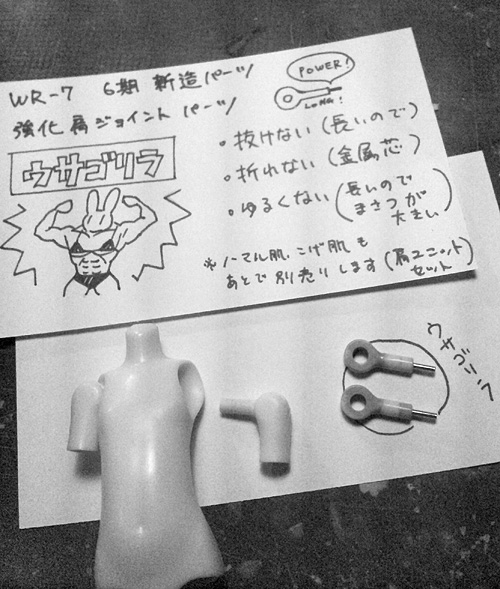 WR-7 6期 新造パーツ
強化肩ジョイントパーツ
ウサゴリラ
POWER!
LONG!
・抜けない（長いので）
・折れない（金属芯）
・ゆるくない（長いのでまさつが大きい）
※ノーマル肌、こげ肌も
あとで別売りします（肩ユニットセット）
ウサゴリラ